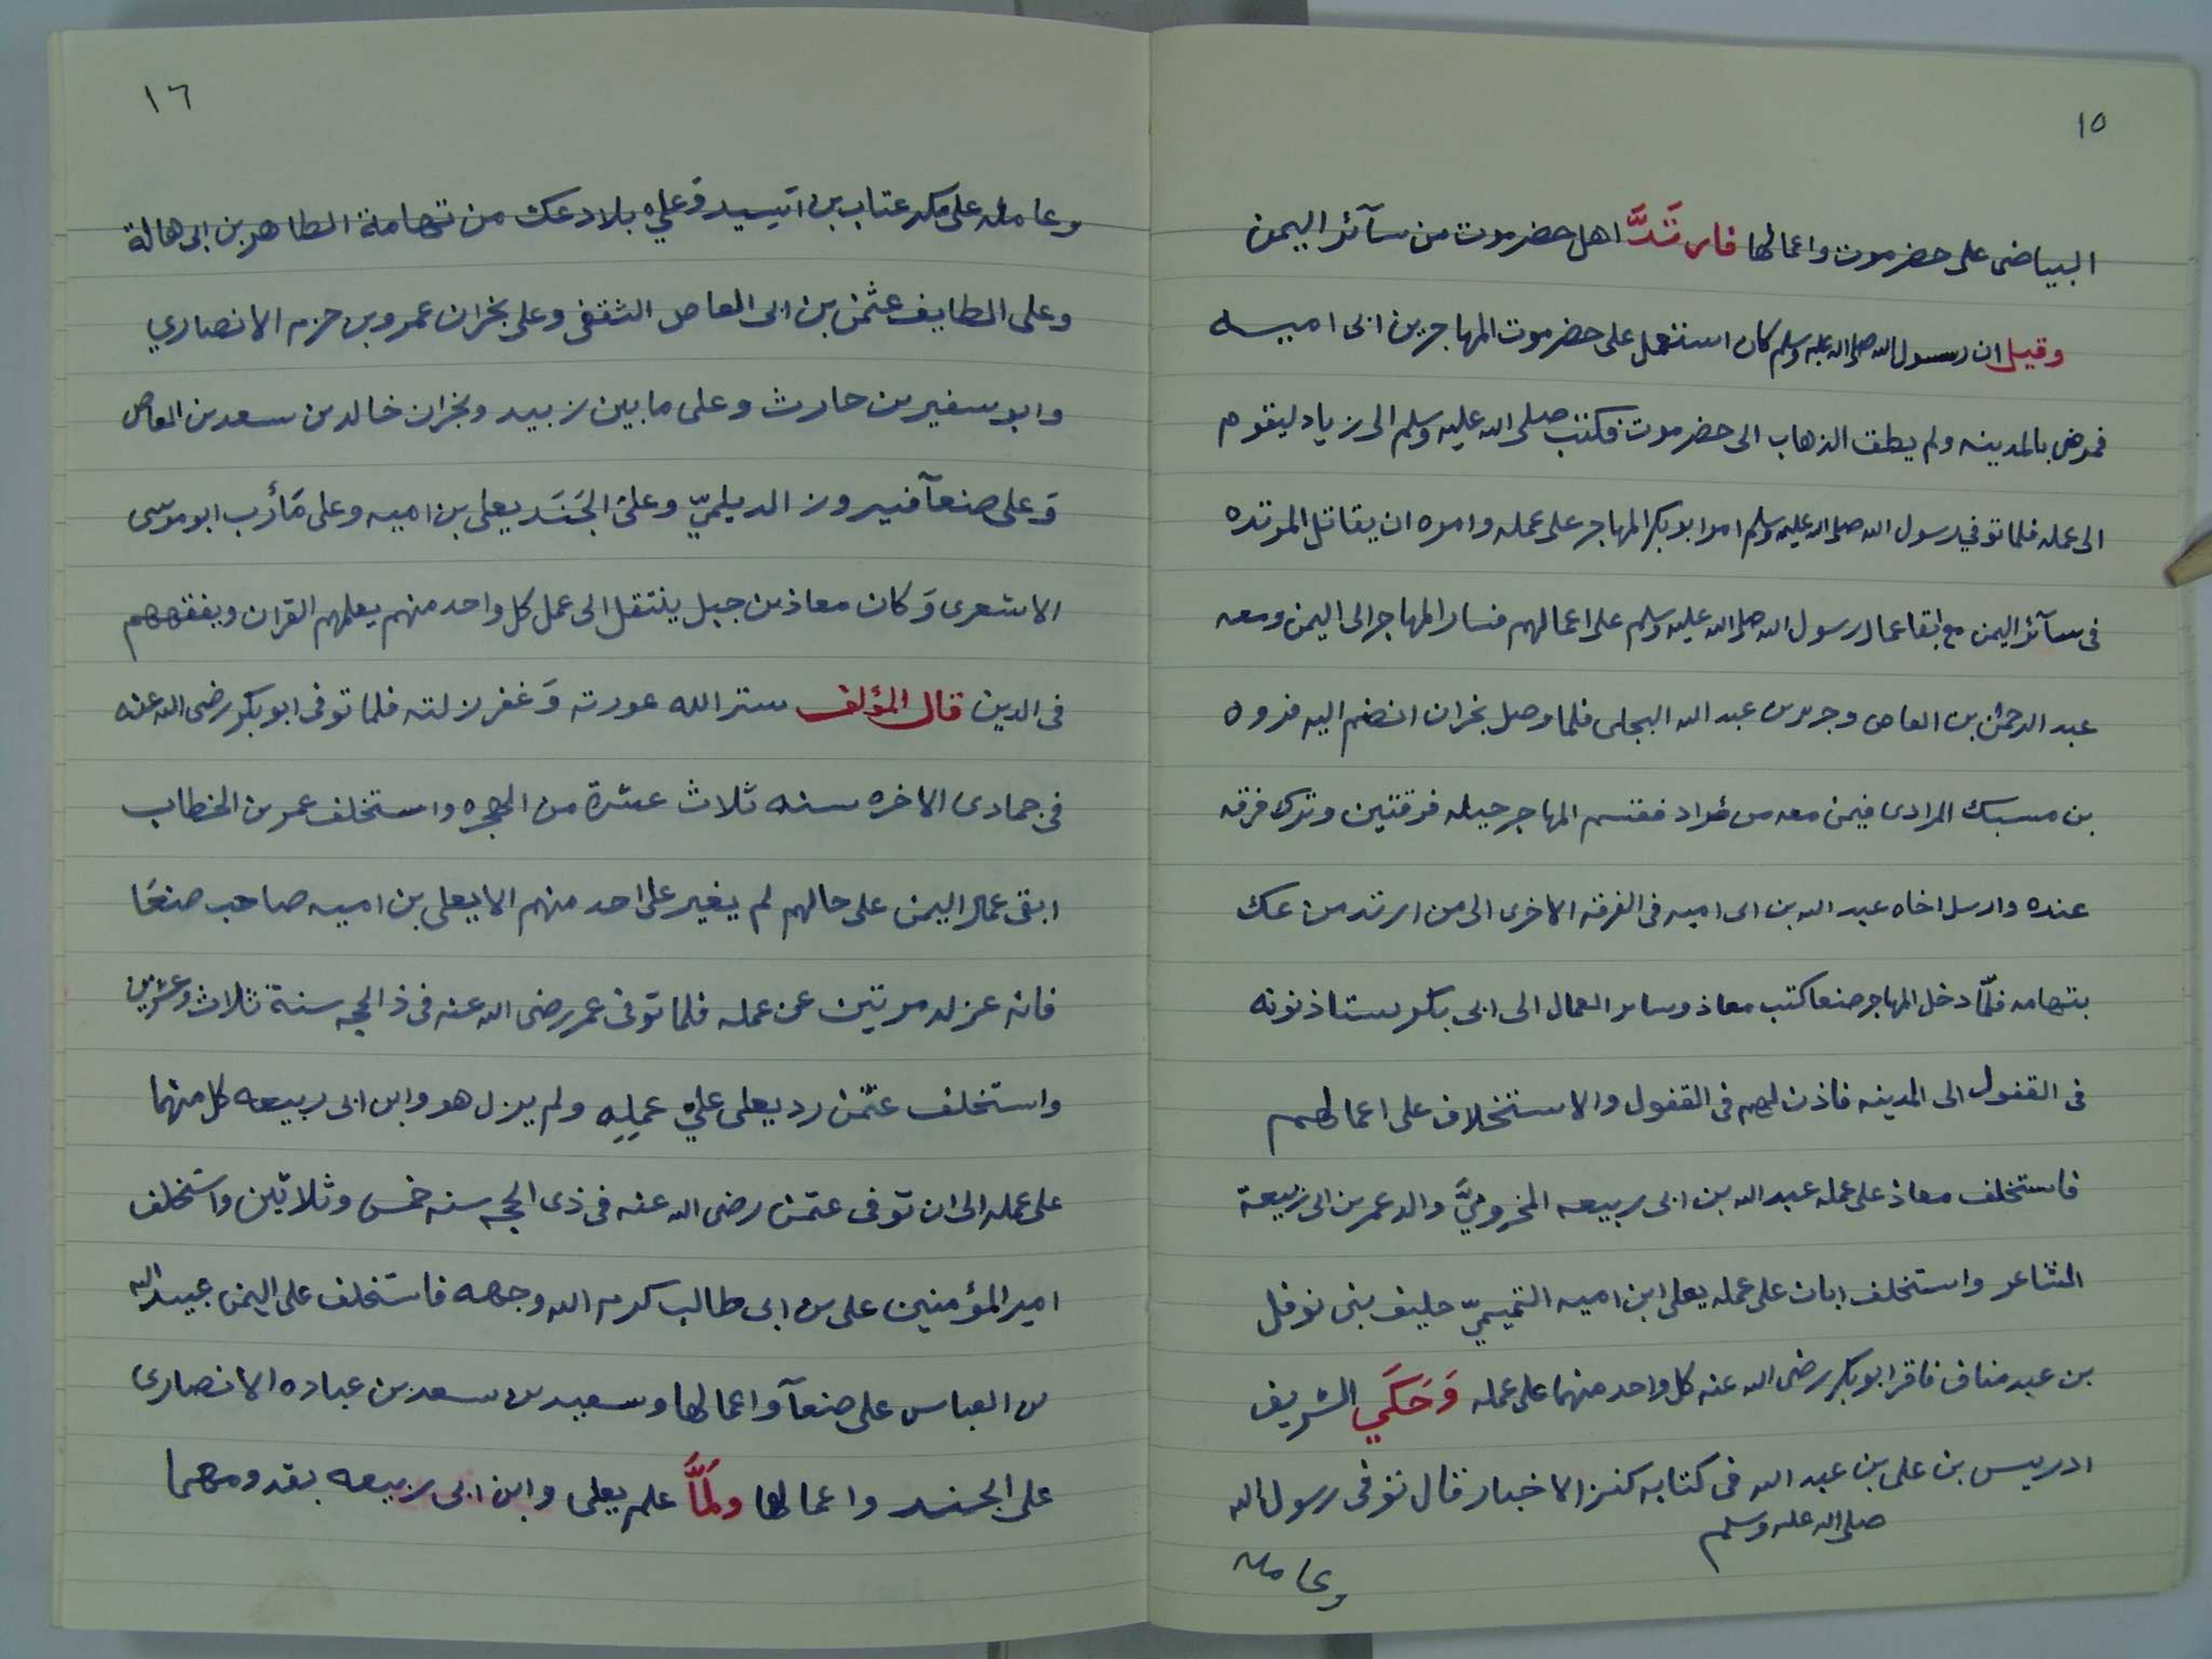 ١٥
البياضى على حضرموت واعمالها فارتَدَّ اهل حضرموت من سآئر اليمن
وقيل ان رسول الله صلى الله عليه وسلم كان استعمل على حضرموت المهاجر بن ابى اميه
فمرض بالمدينه ولم يطق الذهاب الى حضرموت فكتب صلى الله عليه وسلم الى زياد ليقوم
الى عمله فلما توفي رسول الله صلى الله عليه وسلم امر ابو بكر المهاجر على عمله وامره ان يقاتل المرتده
فى سآئر اليمن مع ابقا عمال رسول الله صلى الله عليه وسلم على اعمالهم فسار المهاجر الى اليمن ومعه
عبد الرحمن بن العاص وجرير بن عبد الله البجلى فلما وصل نجران انضم اليه فروه
بن مسبك المرادى فيمن معه من مراد فقتسم المهاجر خيله فرقتين وترك فرقه
عنده وارسل اخاه عبد الله بن ابى اميه فى الفرقه الاخرى الى من ارتد من عك
بتهامه فلمّا دخل المهاجر صنعا كتب معاذ وساير العمال الى ابى بكر يستاذنونه
فى القفول الى المدينه فاذن لهم فى القفول والاستخلاف على اعمالهم
فاستخلف معاذ على عمله عبد الله بن ابى ربيعه المخزوميَّ والد عمر بن ابى ربيعة
الشاعر واستخلف ابان على عمله يعلى ابن اميه التميميّ حليف بنى نوفل
بن عبد مناف فاقر ابو بكر رضى الله عنه كل واحد منهما على عمله وَحَكَي الشريف
ادريس بن على بن عبد الله فى كتابه كنز الاخبار قال توفى رسول الله
صلى الله عليه وسلم
وعامله
١٦
وعامله على مكه عتاب بن اَسِيد وَعلي بلاد عك من تهامة الطاهر بن ابى هالة
وعلى الطايف عثمن بن ابى العاص الثقفى وعلى نجران عمرو بن حزم الانصاري
وابو سفير بن حارث وعلى ما بين زبيد ونجران خالد بن سعد بن العاص
وَعلى صنعآ فيروز الديلميّ وعلىَ الجَنَد يعلى بن اميه وعلى مَأرب ابو موسى
الاشعرى وَكان معاذ بن جبل ينتقل الى عمل كل واحد منهم يعلمهم القران ويفقههم
فى الدين قال المؤلف ستر الله عورته وَغفر زلته فلما توفى ابو بكر رضى الله عنه
فى جمادى الاخره سنه ثلاث عشرة من الهجره واستخلف عمر بن الخطاب
ابقى عمال اليمن على حالهم لم يغير على احد منهم الا يعلى بن اميه صاحب صنعَا
فانه عزله مرتين عن عمله فلما توفى عمر رضى الله عنه فى ذ الحجه سنة ثلاث وعشرين
واستخلف عثمن رد يعلى علي عملِهِ ولم يزل هو وابن ابى ربيعه كل منهما
على عمله الى ان توفى عثمن رضى الله عنه فى ذى الحجه سنه خمس وثلاثين واستخلف
امير المؤمنين على بن ابى طالب كرم الله وجهه فاستخلف على اليمن عبيد الله
بن العباس على صنعآ واعمالها وسعيد بن سعد بن عباده الانصارى
على الجند واعمالها ولَمَّا علم يعلى وابن ابى ربيعه بقدومهما